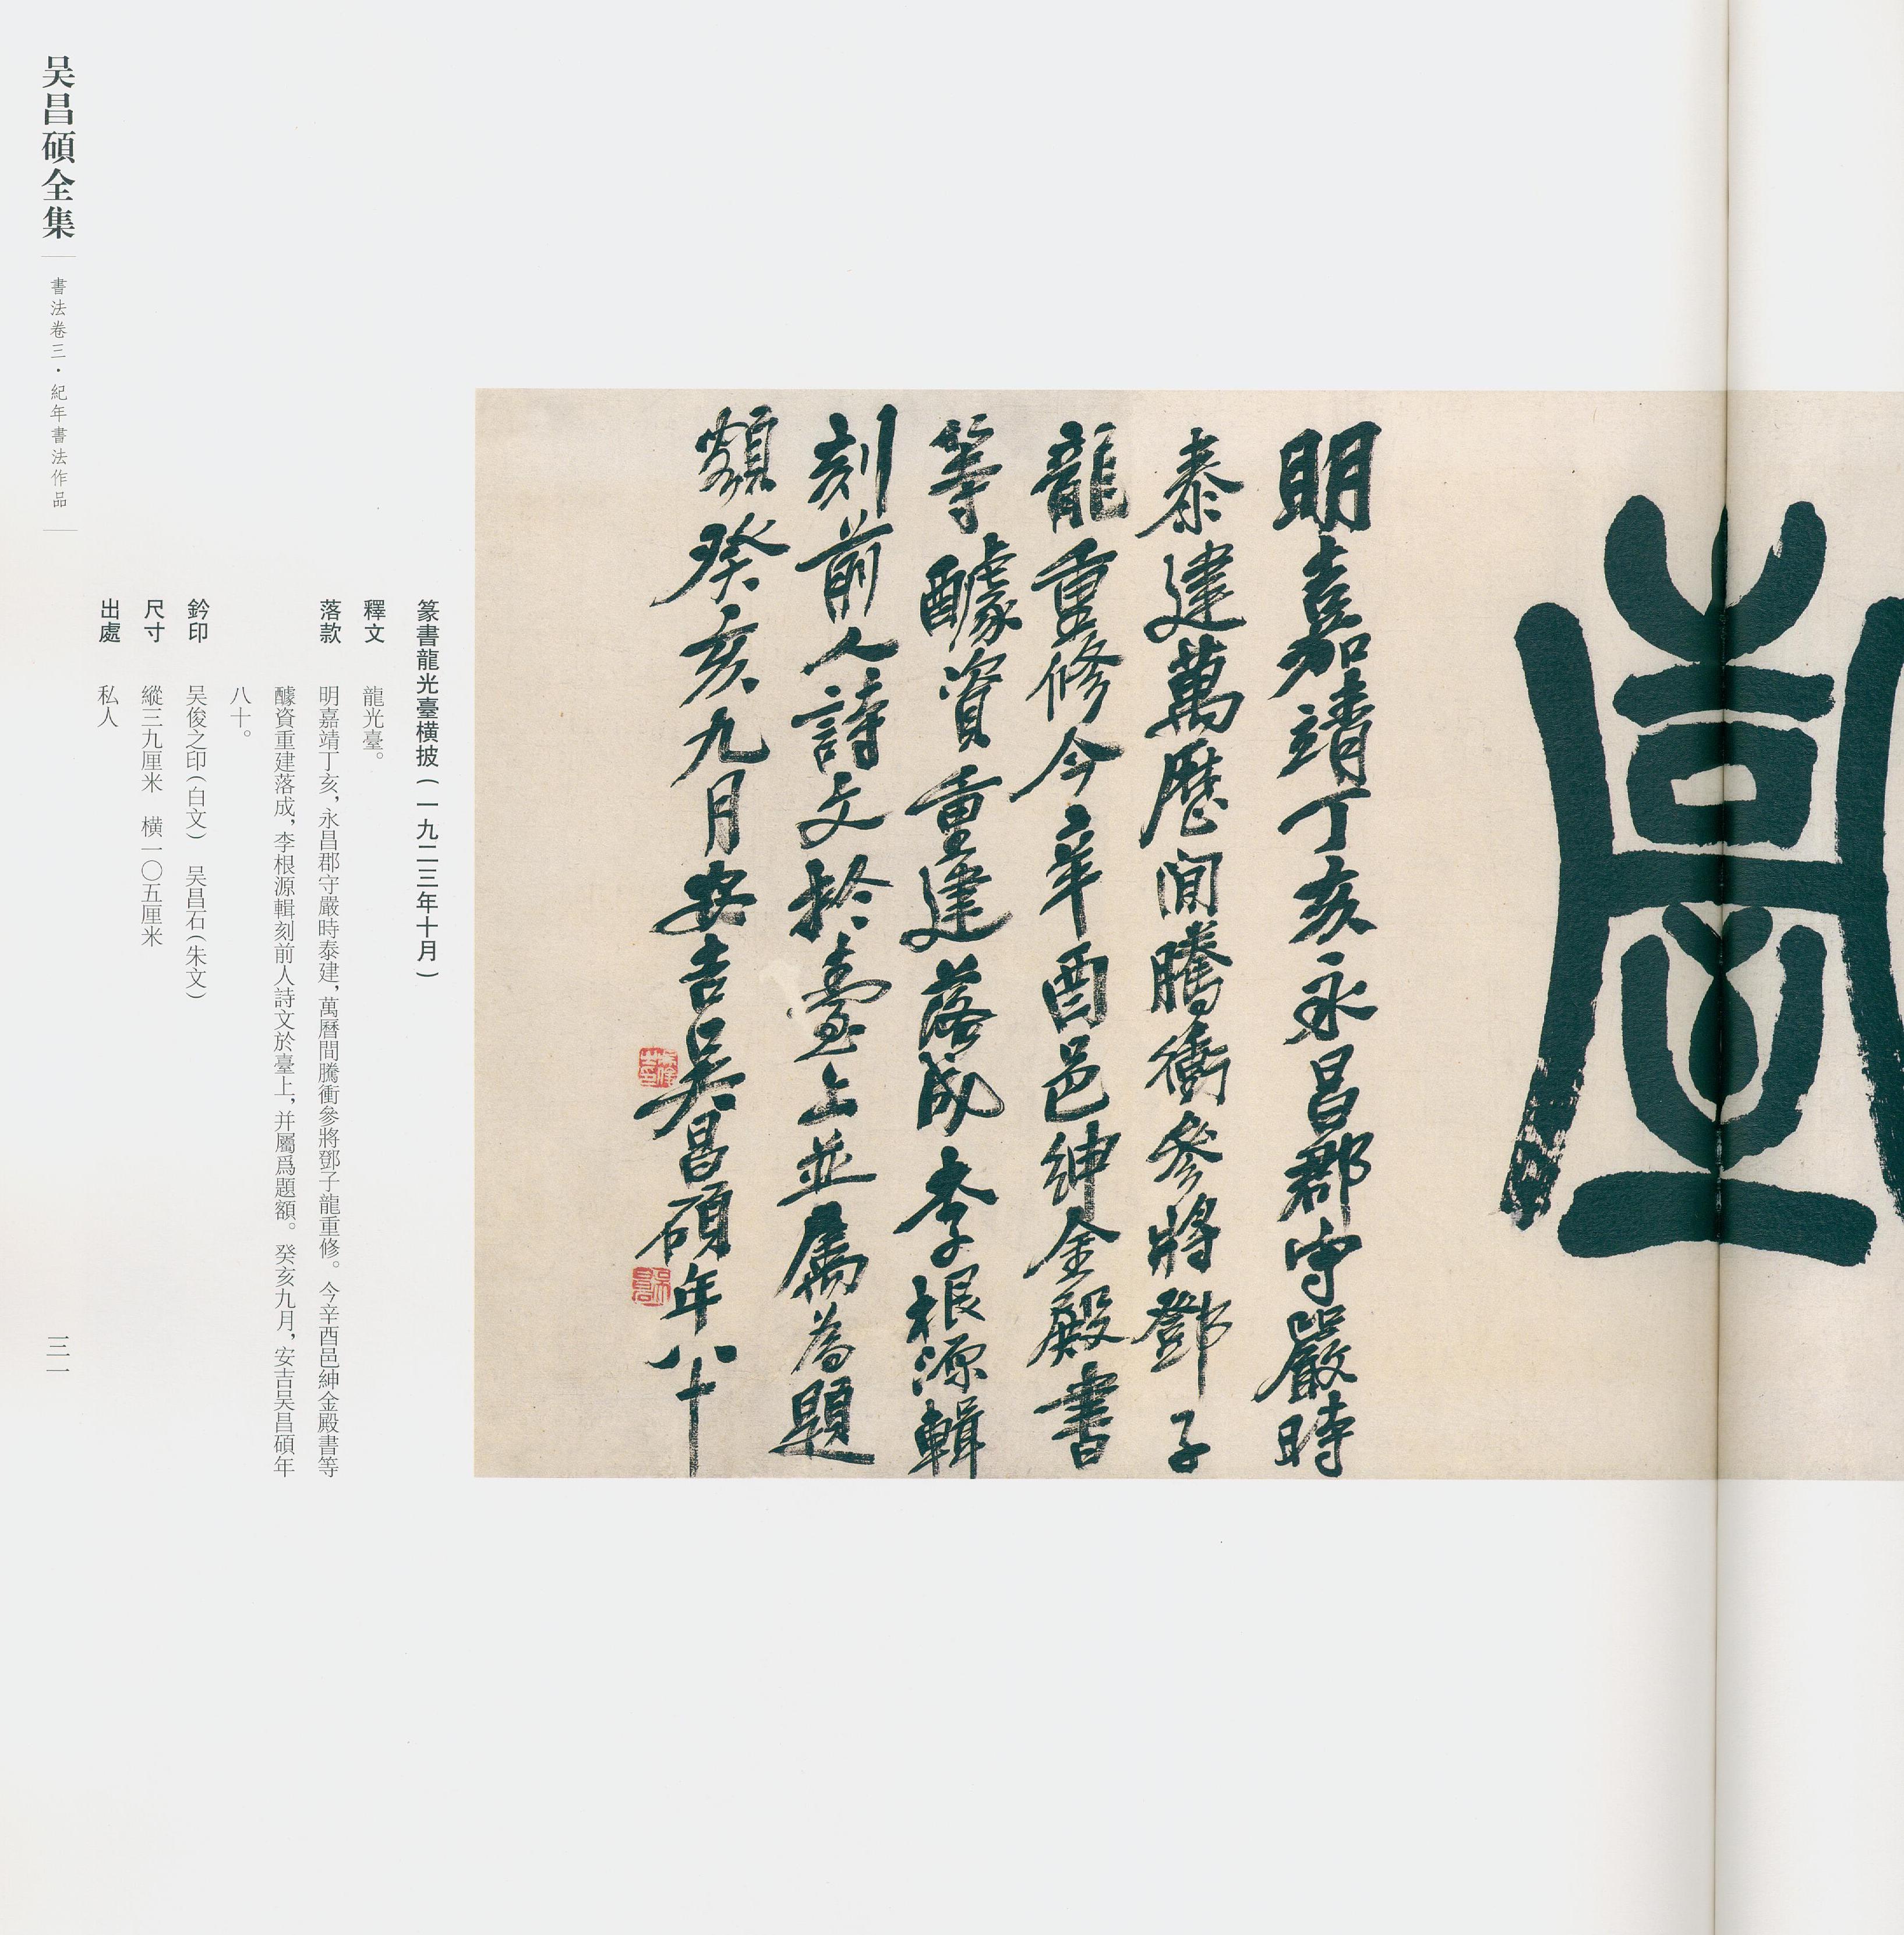 臺
明嘉靖丁亥永昌郡守嚴時
泰建萬歷間騰衝參將鄧子
龍重修今辛酉邑紳金殿書
等醵資重建落成李根源輯
刻前人詩文於臺上並屬為題
額癸亥九月安吉吳昌碩年八十
篆書龍光臺橫披(一九二三年十月)
釋文 龍光臺。
落款 明嘉靖丁亥,永昌郡守嚴時泰建,萬曆間騰衝參將鄧子龍重修。今辛酉邑紳金殿書等
醵資重建落成,李根源輯刻前人詩文於臺上,并屬爲題額。癸亥九月,安吉吴昌碩年
八十。
鈐印 吴俊之印(白文) 吴昌石(朱文)
尺寸 縱三九厘米 橫一〇五厘米
出處 私人
吴昌碩全集
書法卷三·紀年書法作品
三一